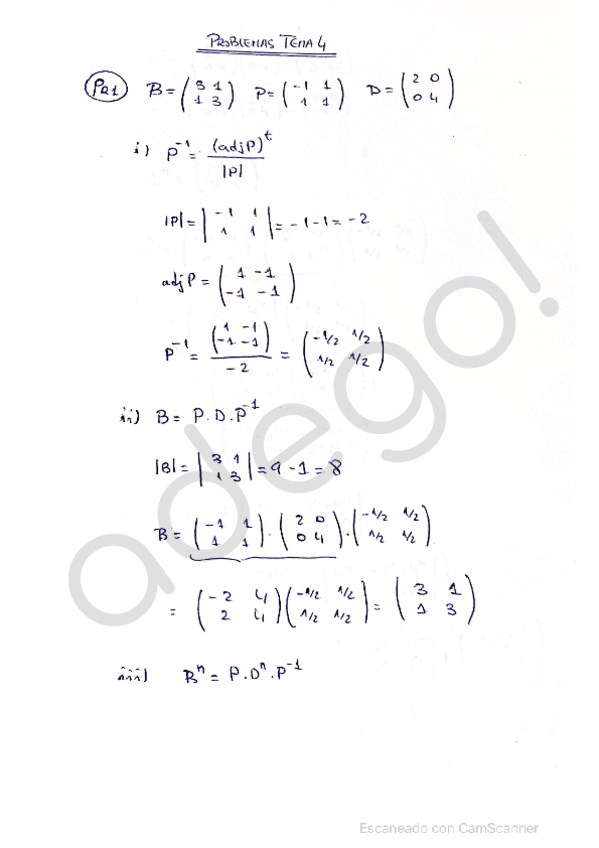 PROBLEMAS TEMA 4
PR1 B = (3 1 / 1 3) P = (-1 1 / 1 1) D = (2 0 / 0 4)
i) P⁻¹ = (adj P)ᵗ / |P|
|P| = |-1 1 / 1 1| = -1-1 = -2
adj P = (1 -1 / -1 -1)
P⁻¹ = (1 -1 / -1 -1) / -2 = (-1/2 1/2 / 1/2 1/2)
ii) B = P.D.P⁻¹
|B| = |3 1 / 1 3| = 9 - 1 = 8
B = (-1 1 / 1 1) . (2 0 / 0 4) . (-1/2 1/2 / 1/2 1/2)
= (-2 4 / 2 4) (-1/2 1/2 / 1/2 1/2) = (3 1 / 1 3)
iii) Bⁿ = P.Dⁿ.P⁻¹
adego!
Escaneado con CamScanner